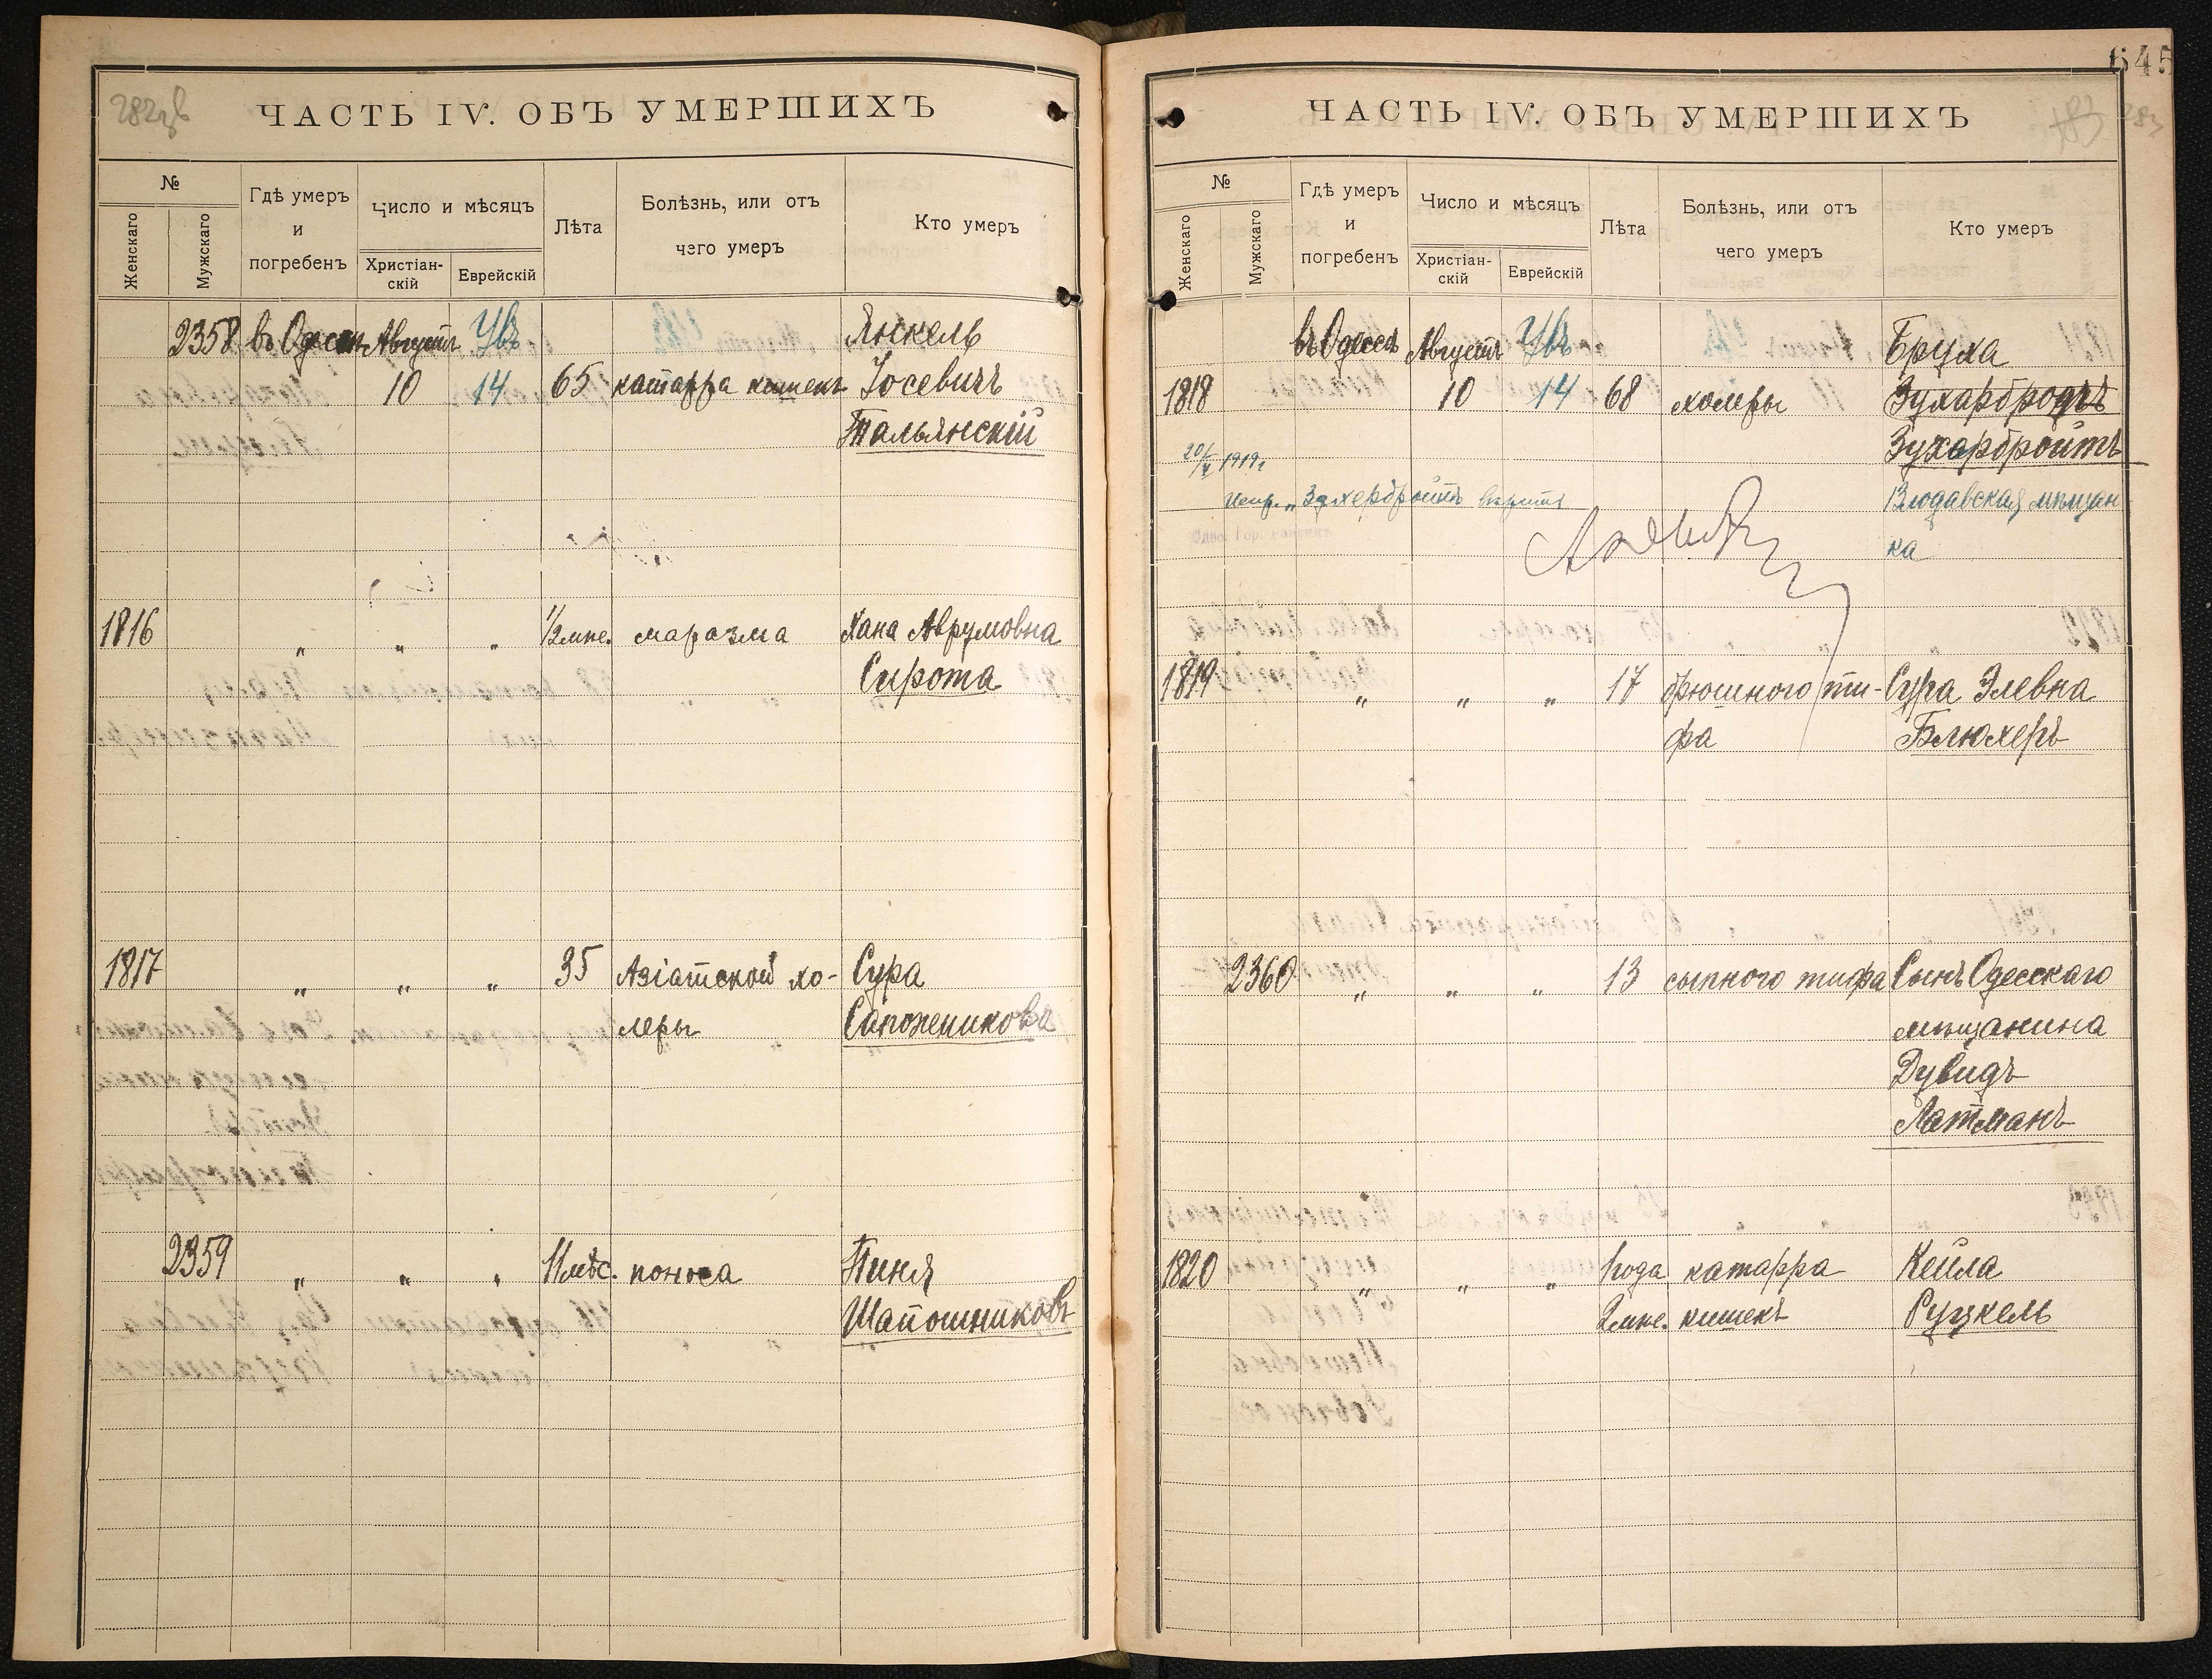 ЧАСТЬ IV. ОБЪ УМЕРШИХЪ
№
Женскаго
Мужскаго
Гдѣ умеръ
и
погребенъ
Число и мѣсяцъ
Христіан-
скій
Еврейскій
Лѣта
Болѣзнь, или отъ
чего умеръ
Кто умеръ
2358 въ Одессѣ Августъ Увъ Янкель
10 14 65 катарра кишекъ Іосевичъ
Тальянскій
1816 " " " 1/2 мце. маразма Хана Аврумовна
Сирота
1817 " " " 35 Азіатской хо- Сура
леры Сапожникова
2359 " " " 11 мѣс. поноса Пиня
Шапошниковъ
645
ЧАСТЬ IV. ОБЪ УМЕРШИХЪ
283
№
Женскаго
Мужскаго
Гдѣ умеръ
и
погребенъ
Число и мѣсяцъ
Христіан-
скій
Еврейскій
Лѣта
Болѣзнь, или отъ
чего умеръ
Кто умеръ
въ Одессѣ Августъ Увъ Бруха
1818 10 14 68 холеры Зухарбродъ
Зухарбройтъ
20/V 1919г.
Испр. „Зухербройтъ вѣрить Влодавская мѣщан-
ка
1819 " " " 17 брюшного ти- Сура Элевна
фа Блюхеръ
2360 " " " 13 сыпного тифа Сынъ Одесскаго
мѣщанина
Дувидъ
Латманъ
1820 " " " 1 года катарра Кейла
2 мце. кишекъ Руцкель